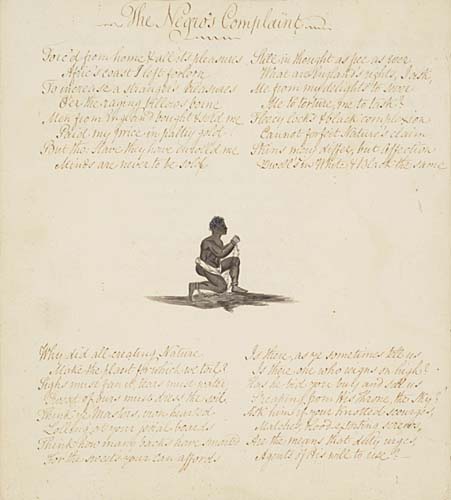 The Negro's Complaint
Forc'd from home & all its pleasures
Afric's coast I left forlorn
To increase a stranger's treasures
O'er the raging billows borne
Men from England bought & sold me
Paid my price in paltry gold
But tho' slave they have enroll'd me
Minds are never to be sold
Still in thought as free as ever
What are England's rights, I ask,
Me from my delights to sever
Me to torture, me to task?
Fleecy locks & black complexion
Cannot forfeit Nature's claim
Skins may differ, but Affection
Dwells in White & Black the same
Why did all creating Nature
Make the plant for which we toil?
Sighs must fan it, tears must water,
Sweat of ours must dress the soil
Think, ye Masters, iron hearted
Lolling at your jovial boards
Think how many backs have smarted
For the sweets your cane affords
Is there, as ye sometimes tell us
Is there one who reigns on high?
Has he bid you buy and sell us
Speaking from his Throne, the Sky?
Ask him, if your knotted scourges,
Matches, blood-extorting screws,
Are the means that duty urges
Agents of His will to use?